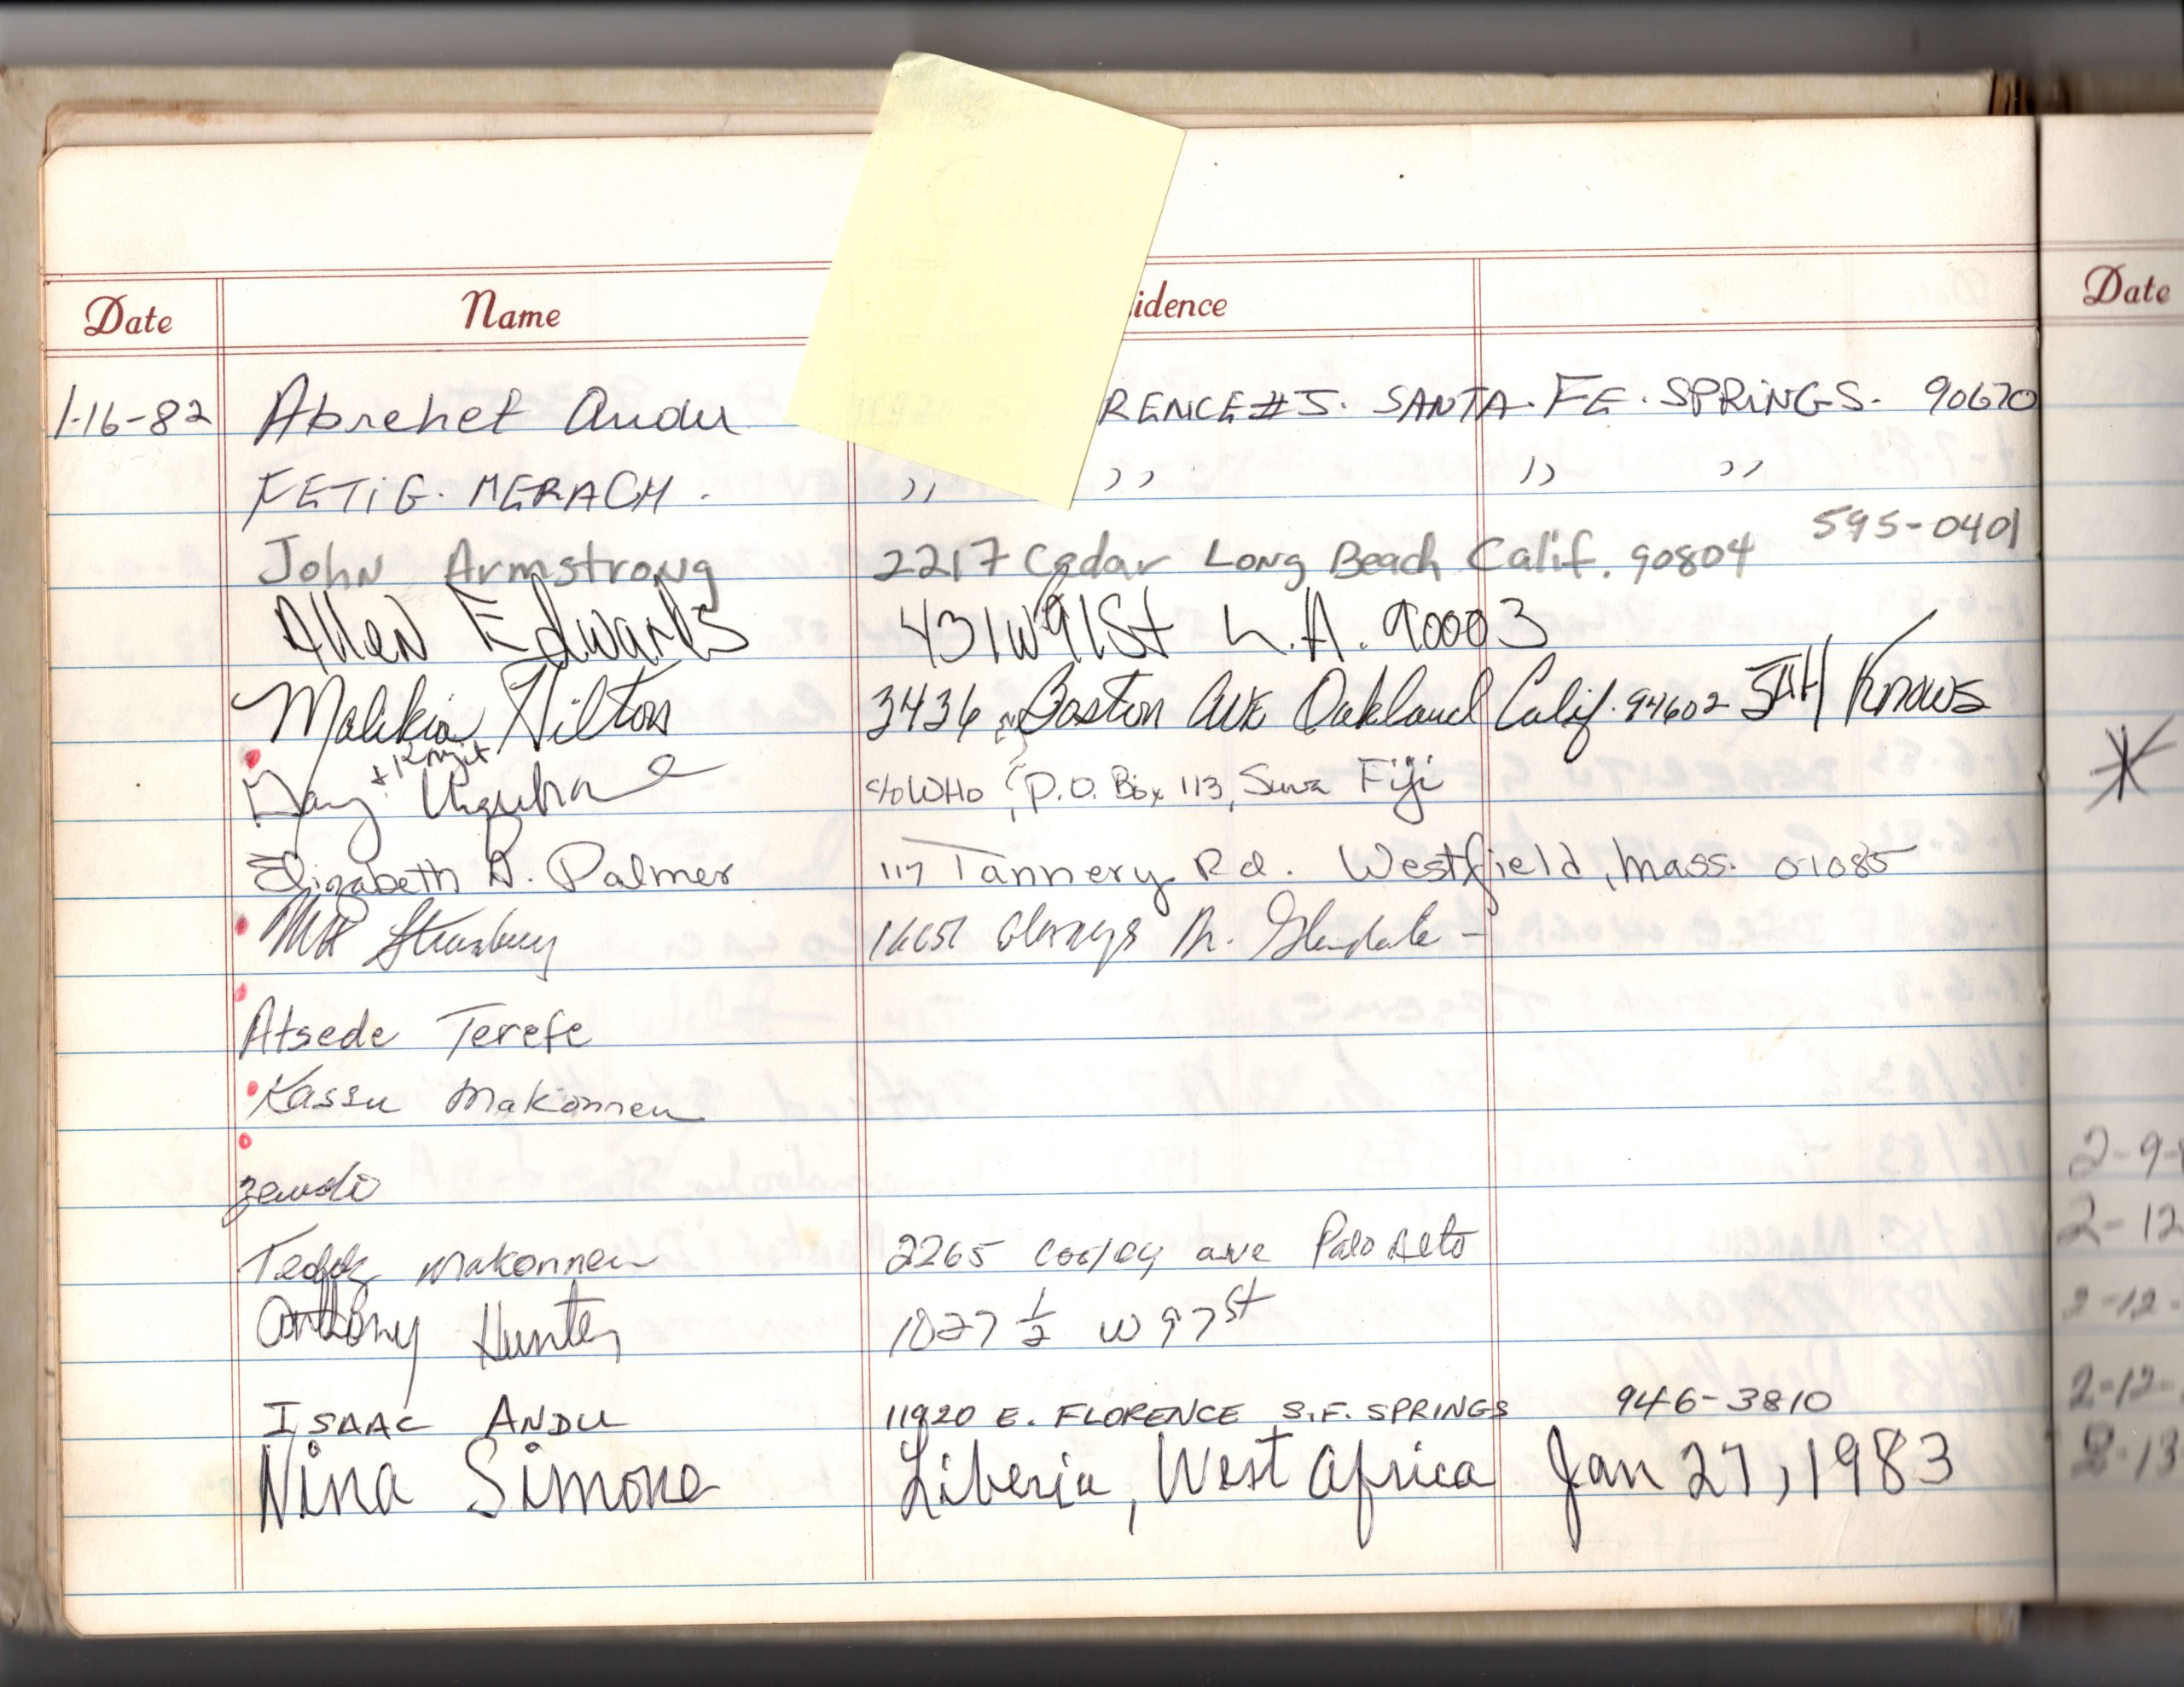 Date Name idence Date
1-16-82 Abrehet Andu RENCE #J. SANTA. FE. SPRINGS. 90670
FETIG. MERACH. ,, ,, ,, ,,
595-0401
John Armstrong 2217 Cedar Long Beach Calif. 90804
Allen Edwards 431 W 91St L.A. 90003
Malikia Hilton 3436 Boston Ave Oakland Calif. 94602 JAH Knows
c/o WHO, P.O. Box 113, Suva Fiji
Elizabeth D. Palmer 117 Tannery Rd. Westfield, Mass. 01085
Glendale -
Atsede Terefe
Kassu Makonnen
zewdi
Teddy Makonnen 2265 Cooley ave Palo Alto
Anthony Hunter 1027 1/2 W 97 st
ISAAC ANDU 11920 E. FLORENCE S.F. SPRINGS 946-3810
Nina Simone Liberia, West Africa Jan 27, 1983
2-9-
2-12
2-12-
2-12-
2-13